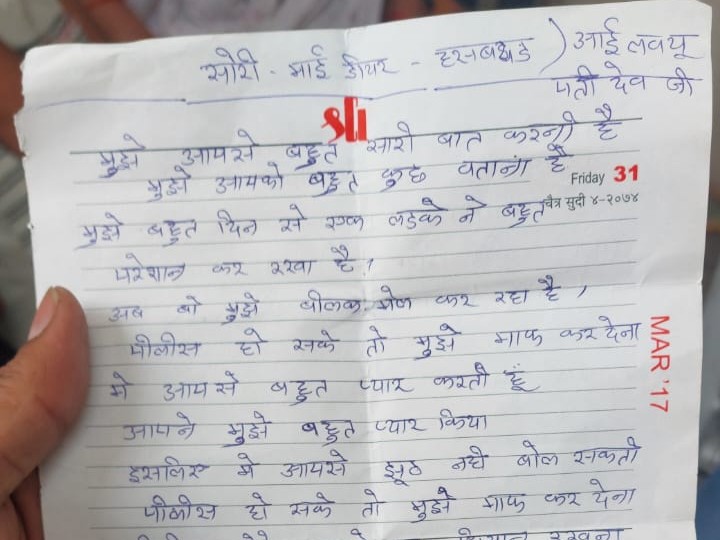 सोरी - माई डीयर - हसबेण्ड ) आई लवयू
पती देव जी
श्री
मुझे आपसे बहुत सारी बात करनी है
मुझे आपको बहुत कुछ बताना है
Friday 31
चैत्र सुदी ४-२०७४
मुझे बहुत दिन से एक लडके ने बहुत
परेशान कर रखा है,
अब वो मुझे बीलेक मेल कर रहा है,
MAR '17
पीलीस हो सके तो मुझे माफ कर देना
मे आपसे बहुत प्यार करती हूं
आपने मुझे बहुत प्यार किया
इसलिए मे आपसे झूठ नही बोल सकती
पीलीस हो सके तो मुझे माफ कर देना
रखना